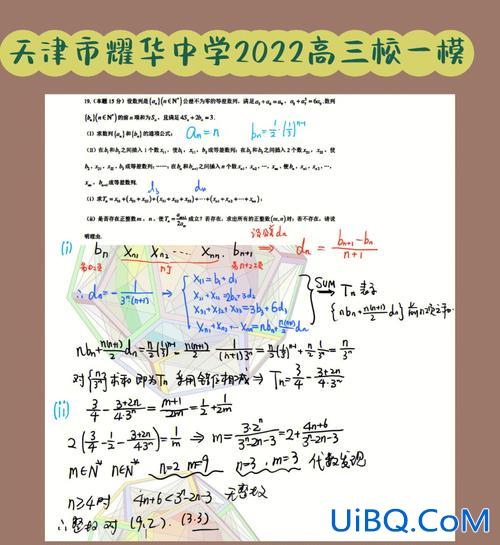 天津市耀华中学2022高三校一模
19.(本题 15 分) 设数列是{aₙ}(n∈N*)公差不为零的等差数列，满足a₃+a₆=a₉，a₅+a₇²=6a₉.数列
{bₙ}(n∈N*)的前 n 项和为Sₙ，且满足4Sₙ+2bₙ=3.
(I) 求数列{aₙ}和{bₙ}的通项公式；
aₙ=n
bₙ=½·(⅓)ⁿ⁻¹
(II) 在b₁和b₂之间插入 1 个数x₁₁，使b₁，x₁₁，b₂成等差数列；在b₂和b₃之间插入 2 个数x₂₁，x₂₂，使
b₂，x₂₁，x₂₂，b₃成等差数列；……；在bₙ和bₙ₊₁之间插入 n 个数xₙ₁，xₙ₂，…，xₙₙ，使bₙ，xₙ₁，xₙ₂，…，
xₙₙ，bₙ₊₁成等差数列.
(i) 求Tₙ=x₁₁+(x₂₁+x₂₂)+(x₃₁+x₃₂+x₃₃)+…+(xₙ₁+xₙ₂+…+xₙₙ)；
(ii) 是否存在正整数 m，n，使Tₙ=aₘ₊₁/2aₘ成立？若存在，求出所有的正整数(m,n)对；若不存在，请说
明理由.
(i) bₙ xₙ₁ xₙ₂ … xₙₙ bₙ₊₁ ⇒ dₙ = (bₙ₊₁-bₙ)/(n+1)
∴dₙ=-1/(3ⁿ(n+1)) ⇒
x₁₁=b₁+d₁
x₂₁+x₂₂=2b₂+3d₂
x₃₁+x₃₂+x₃₃=3b₃+6d₃
xₙ₁+xₙ₂+…xₙₙ=nbₙ+n(n+1)/2 dₙ
SUM Tₙ
{nbₙ+n(n+1)/2 dₙ}前n项之和
nbₙ+n(n+1)/2 dₙ=n/2(⅓)ⁿ⁻¹-n(n+1)/2·1/((n+1)3ⁿ)=n/3ⁿ
对{n/3ⁿ}求和 即为Tₙ 采用错位相减 ⇒ Tₙ=3/4-(3+2n)/(4·3ⁿ)
(ii) 3/4-(3+2n)/(4·3ⁿ)=(m+1)/2m=1/2+1/2m
2(3/4-1/2-(3+2n)/(4·3ⁿ))=1/m ⇒ m=3·2ⁿ/(3ⁿ-2n-3)=2+(4n+6)/(3ⁿ-2n-3)
m∈N* n∈N* n=2 m=9 n=3, m=3 代数发现
n≥4时 4n+6<3ⁿ-2n-3 无整数
∴整数对 (9,2), (3,3)
UiBQ.CoM